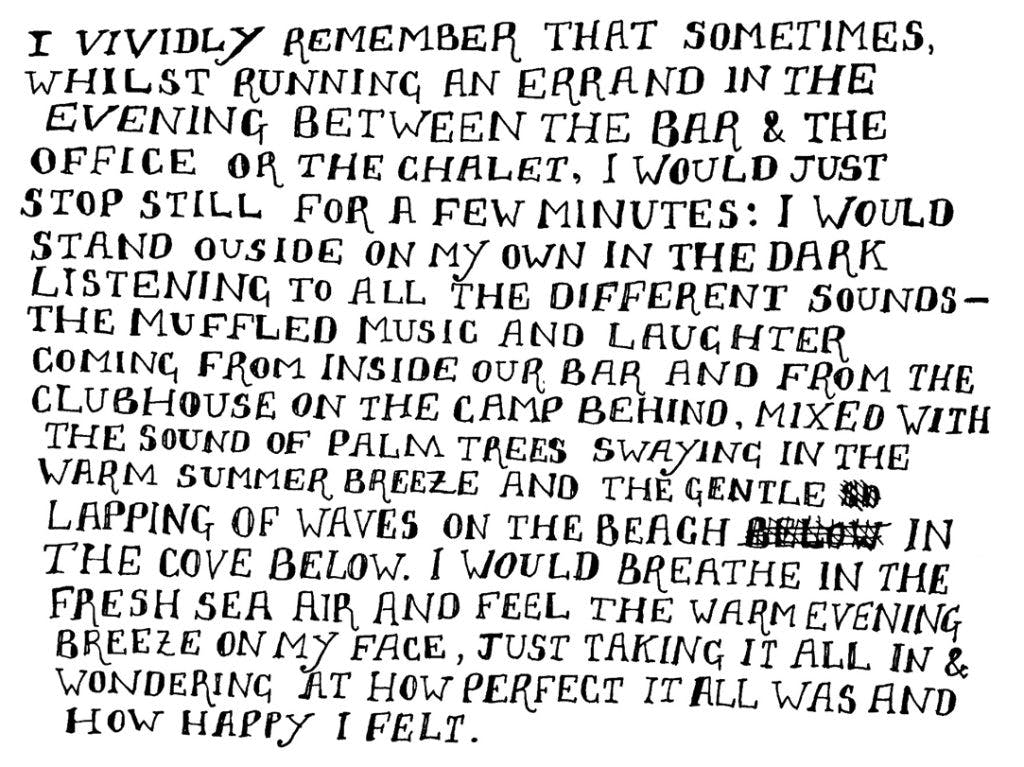 I VIVIDLY REMEMBER THAT SOMETIMES,
WHILST RUNNING AN ERRAND IN THE
EVENING BETWEEN THE BAR & THE
OFFICE OR THE CHALET, I WOULD JUST
STOP STILL FOR A FEW MINUTES: I WOULD
STAND OUSIDE ON MY OWN IN THE DARK
LISTENING TO ALL THE DIFFERENT SOUNDS–
THE MUFFLED MUSIC AND LAUGHTER
COMING FROM INSIDE OUR BAR AND FROM THE
CLUBHOUSE ON THE CAMP BEHIND, MIXED WITH
THE SOUND OF PALM TREES SWAYING IN THE
WARM SUMMER BREEZE AND THE GENTLE
LAPPING OF WAVES ON THE BEACH IN
THE COVE BELOW. I WOULD BREATHE IN THE
FRESH SEA AIR AND FEEL THE WARM EVENING
BREEZE ON MY FACE, JUST TAKING IT ALL IN &
WONDERING AT HOW PERFECT IT ALL WAS AND
HOW HAPPY I FELT.